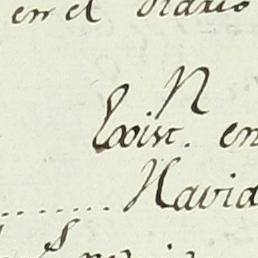 en el Diario
N
Exist. en
Navid